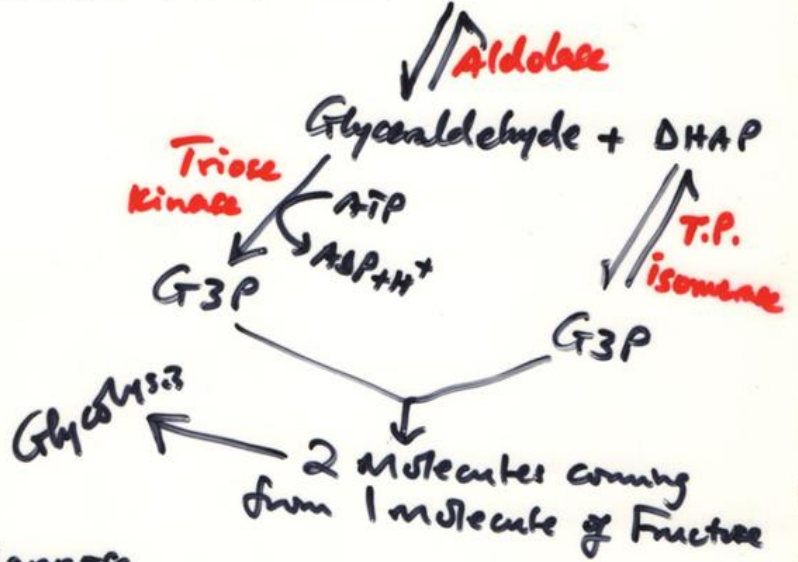 Aldolase
Glyceraldehyde + DHAP
Triose
Kinase
ATP
ADP+H+
T.P.
isomerase
G3P
G3P
Glycolysis
2 Molecules coming
from 1 molecule of Fructose